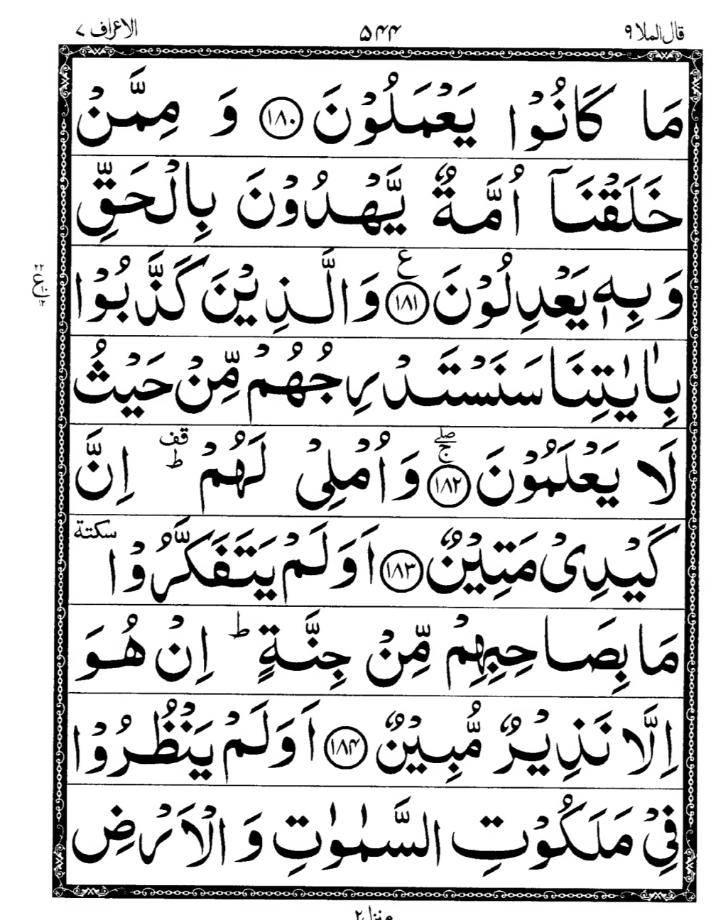 قال الملا ٩ ۵۴۴ الاعراف ٧
مَا كَانُوْا يَعْمَلُوْنَ ﴿١٨٠﴾ وَ مِمَّنْ
خَلَقْنَاۤ اُمَّةٌ يَّهْدُوْنَ بِالْحَقِّ
وَ بِهٖ يَعْدِلُوْنَ ﴿١٨١﴾ ع وَالَّذِيْنَ كَذَّبُوْا
بِاٰيٰتِنَا سَنَسْتَدْرِجُهُمْ مِّنْ حَيْثُ
لَا يَعْلَمُوْنَ ﴿١٨٢﴾ صلے ج وَ اُمْلِىْ لَهُمْ قف ط اِنَّ
كَيْدِىْ مَتِيْنٌ ﴿١٨٣﴾ اَوَلَمْ يَتَفَكَّرُوْا سكتة
مَا بِصَاحِبِهِمْ مِّنْ جِنَّةٍ ط اِنْ هُوَ
اِلَّا نَذِيْرٌ مُّبِيْنٌ ﴿١٨٤﴾ اَوَلَمْ يَنْظُرُوْا
فِىْ مَلَكُوْتِ السَّمٰوٰتِ وَ الْاَرْضِ
منزل ٢